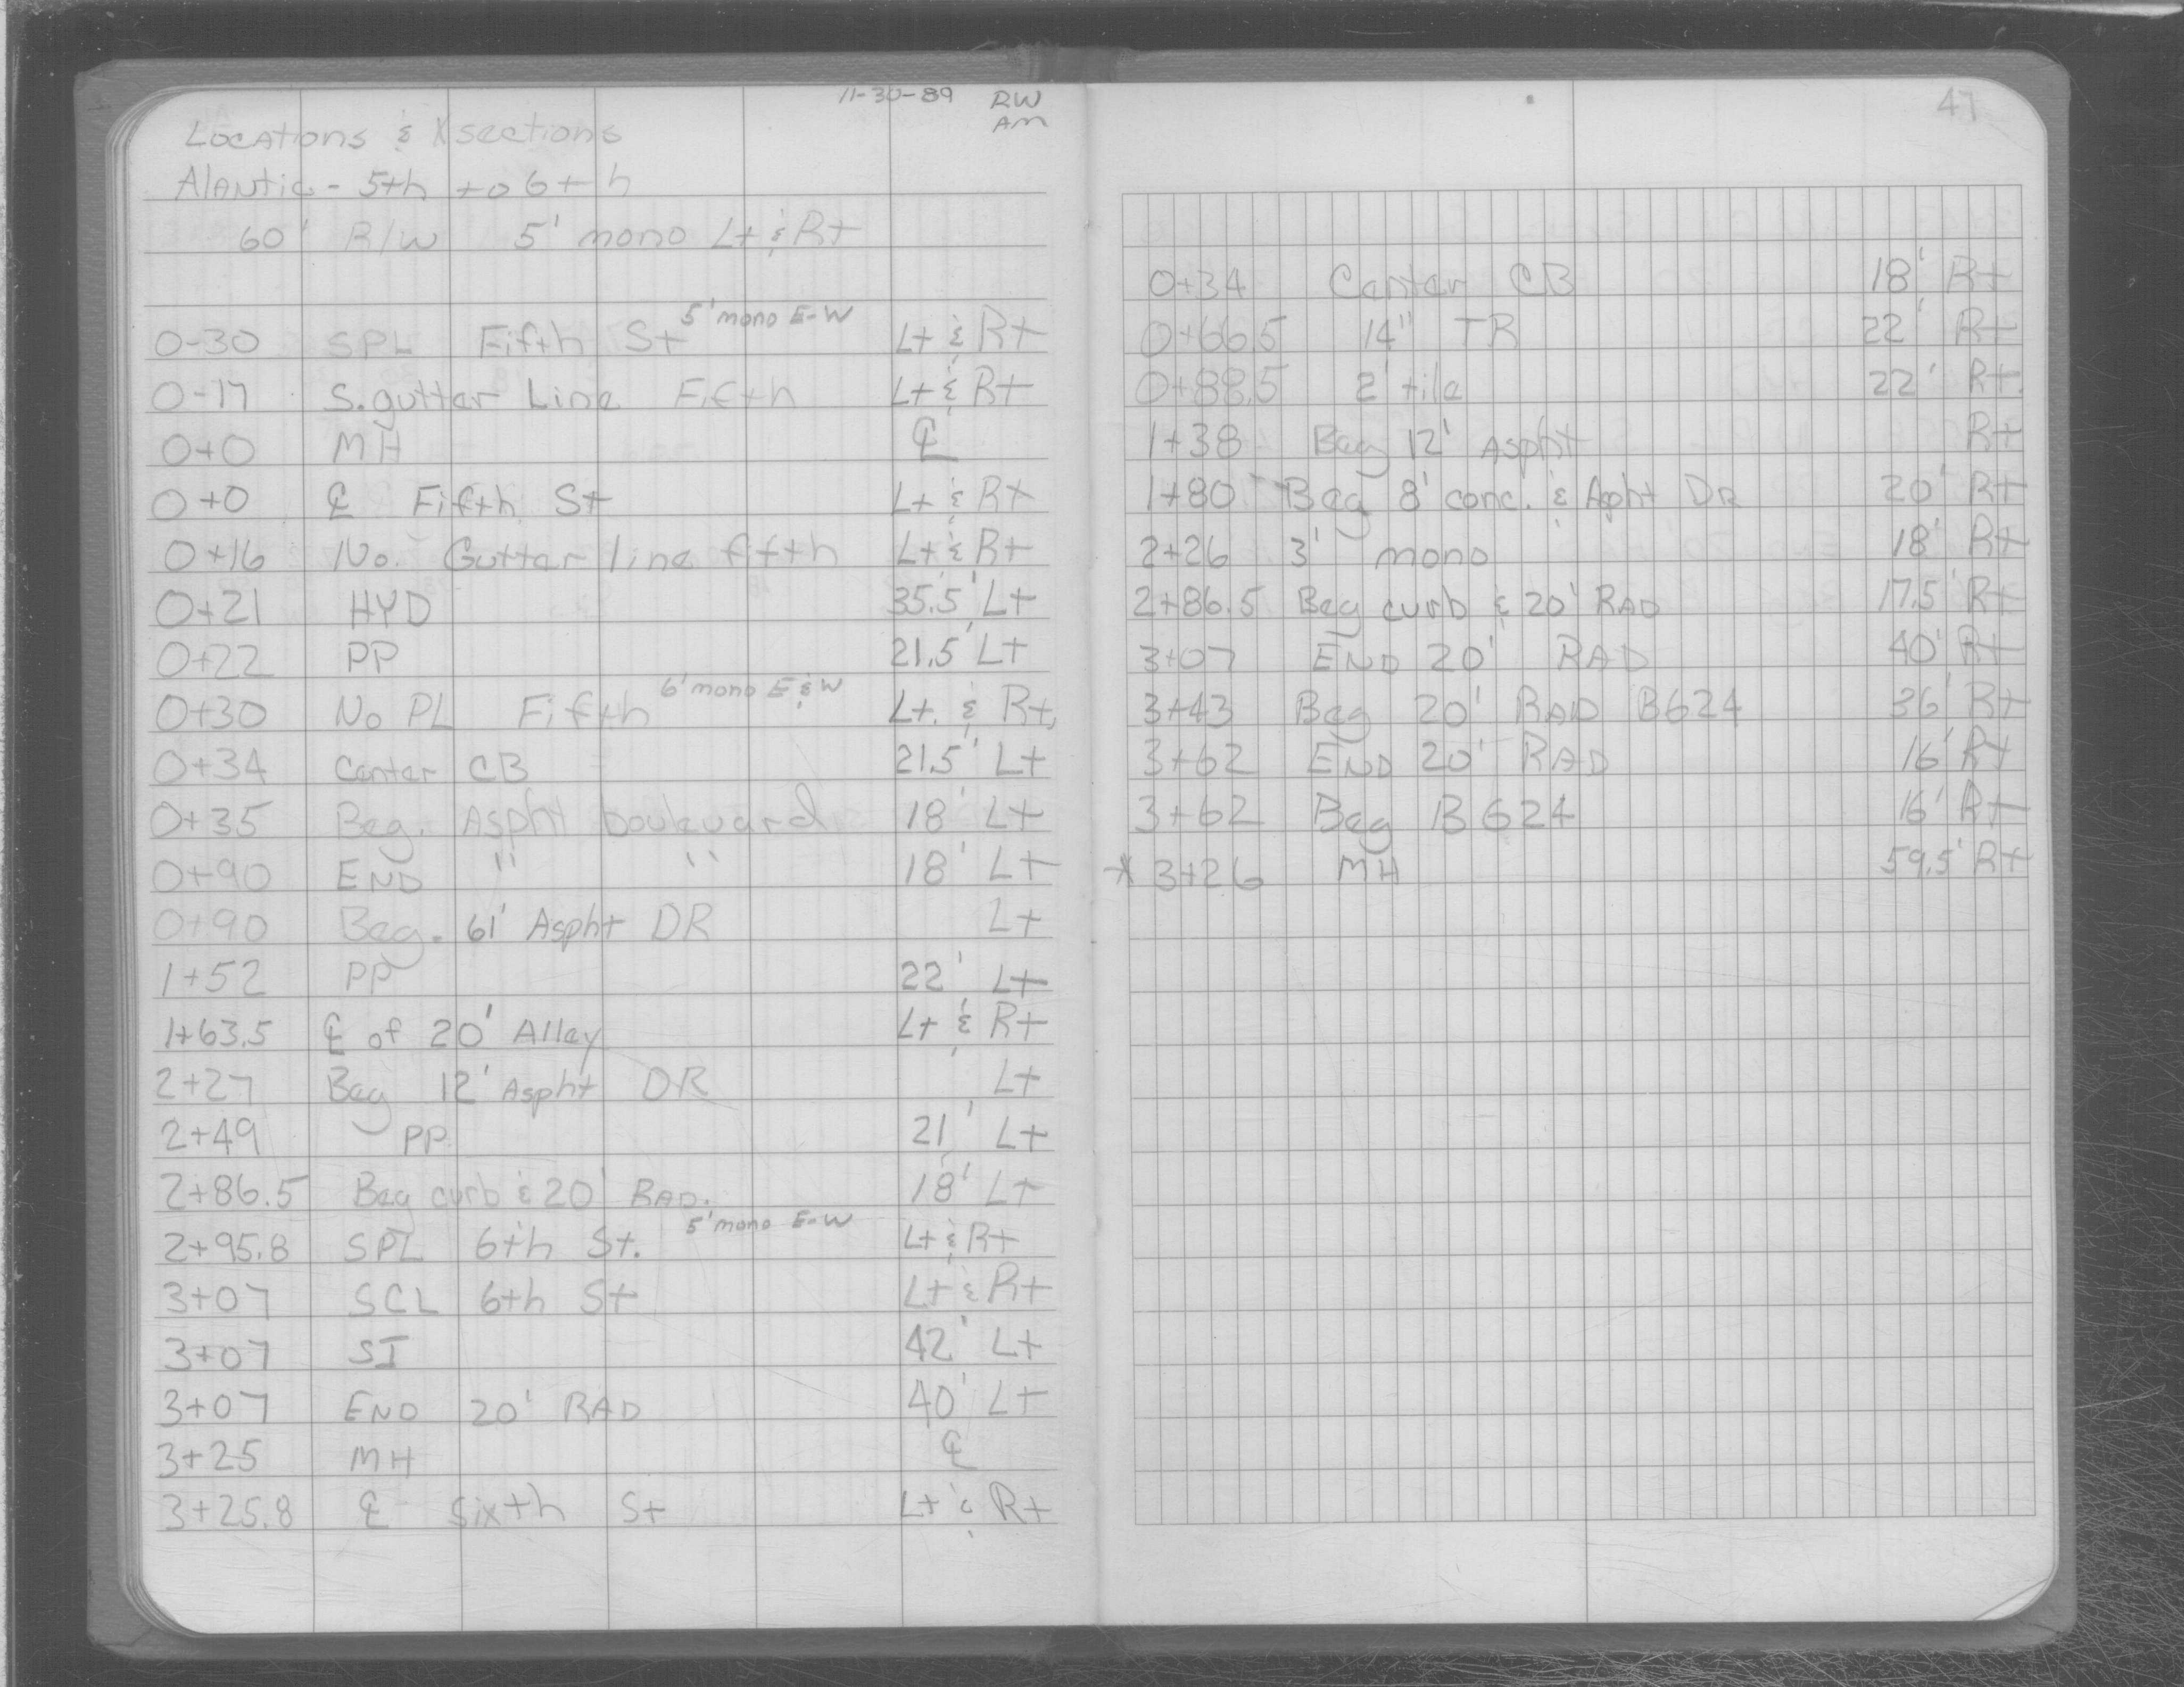 11-30-89 RW
AM
Locations & Xsections
Alantic - 5th to 6th
60' R/W 5' mono Lt & Rt
0-30 SPL Fifth St 5' mono E-W Lt & Rt
0-17 S. gutter Line Fifth Lt & Rt
0+0 MH ℄
0+0 ℄ Fifth St Lt & Rt
0+16 No. Gutter line fifth Lt & Rt
0+21 HYD 35.5' Lt
0+22 PP 21.5' Lt
0+30 No PL Fifth 6' mono E & W Lt. & Rt.
0+34 Center CB 21.5' Lt
0+35 Beg. Aspht boulevard 18' Lt
0+90 END " " 18' Lt
0+90 Beg. 61' Aspht DR Lt
1+52 PP 22' Lt
1+63.5 ℄ of 20' Alley Lt & Rt
2+27 Beg 12' Aspht DR Lt
2+49 PP 21' Lt
2+86.5 Beg curb & 20' RAD. 18' Lt
2+95.8 SPL 6th St. 5' mono E-W Lt & Rt
3+07 SCL 6th St Lt & Rt
3+07 SI 42' Lt
3+07 END 20' RAD 40' Lt
3+25 MH ℄
3+25.8 ℄ Sixth St Lt & Rt
47
0+34 Center CB 18' Rt
0+66.5 14" TR 22' Rt
0+88.5 2' tile 22' Rt.
1+38 Beg 12' Aspht Rt
1+80 Beg 8' conc. & Apht DR 20' Rt
2+26 3' mono 18' Rt
2+86.5 Beg curb & 20' RAD 17.5' Rt
3+07 END 20' RAD 40' Rt
3+43 Beg 20' RAD B624 36' Rt
3+62 END 20' RAD 16' Rt
3+62 Beg B624 16' Rt
* 3+26 MH 59.5' Rt